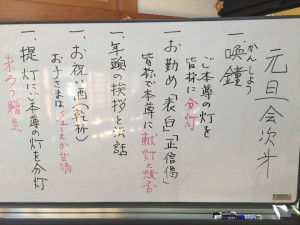 元旦会次第
一、喚鐘
かんしょう
ご本尊の灯を
皆様に分灯
一、お勤め「表白」「正信偈」
皆様でご本尊に献灯と焼香
一、年頭の挨拶と法話
一、お祝い酒（乾杯）
お子さまは、ジュースか甘酒
一、提灯にご本尊の灯を分灯